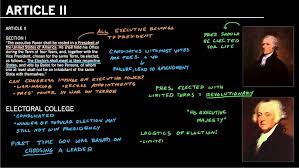 ARTICLE II
ARTICLE II
SECTION I
"The executive Power shall be vested in a President of
the United States of America. He shall hold his Office
during the Term of four Years, and, together with the
Vice President, chosen for the same Term, be elected,
as follows:
The Electors shall meet in their respective
States, and vote by Ballot for two Persons, of whom
one at least shall not be an Inhabitant of the same
State with themselves."
ALL EXECUTIVE BELONGS
TO PRESIDENT
CANDIDATES W/ HIGHEST VOTES
ARE PRES. & VP
FAILURE, LEAD TO AMENDMENT
PRES SHOULD
BE ELECTED
FOR LIFE
CAN CONGRESS INFRINGE ON EXECUTIVE POWER?
- WAR-MAKING
- RECESS APPOINTMENTS
- PRES' POWER IN WAR ON TERROR
PRES. ELECTED WITH
LIMITED TERMS = REVOLUTIONARY
ELECTORAL COLLEGE
- "COMPLICATED"
- WINNER OF POPULAR ELECTION MAY
STILL NOT WIN PRESIDENCY
FIRST TIME GOV. WAS BASED ON
CHOOSING A LEADER
"HIS EXECUTIVE
MAJESTY"
LOGISTICS OF ELECTION:
- LIMITED